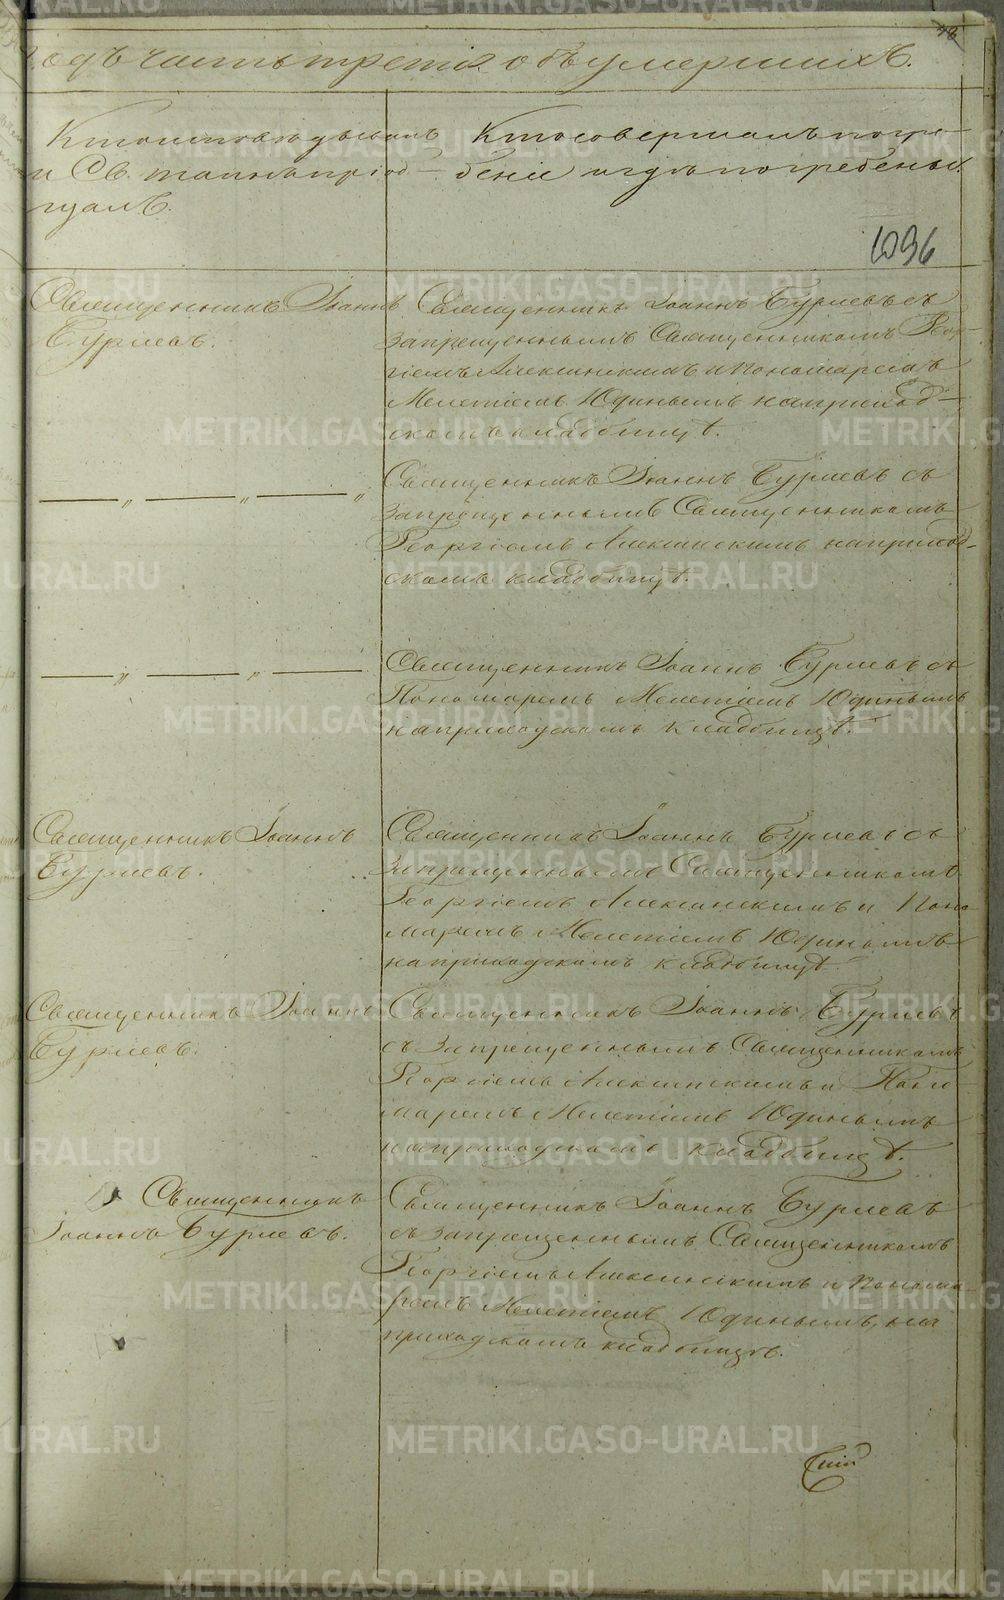 годъ часть третія объ умершихъ.
Кто исповѣдывалъ
и Св. тайнъ пріоб-
щалъ.
Кто совершалъ погре-
беніе и гдѣ погребены.
1096
Священникъ Іоаннъ
Бурлевъ.
Священникъ Іоаннъ Бурлевъ съ
запрещеннымъ Священникомъ Геор-
гіемъ Алексинскимъ и Пономаремъ
Мелетіемъ Юдинымъ на приход-
скомъ кладбищѣ.
— „ — „ — „
Священникъ Іоаннъ Бурлевъ съ
запрещеннымъ Священникомъ
Георгіемъ Алексинскимъ на приход-
скомъ кладбищѣ.
— „ — „ —
Священникъ Іоаннъ Бурлевъ съ
Пономаремъ Мелетіемъ Юдинымъ
на приходскомъ кладбищѣ.
Священникъ Іоаннъ
Бурлевъ.
Священникъ Іоаннъ Бурлевъ съ
запрещеннымъ Священникомъ
Георгіемъ Алексинскимъ и Поно-
маремъ Мелетіемъ Юдинымъ
на приходскомъ кладбищѣ.
Священникъ Іоаннъ
Бурлевъ.
Священникъ Іоаннъ Бурлевъ
съ запрещеннымъ Священникомъ
Георгіемъ Алексинскимъ и Поно-
маремъ Мелетіемъ Юдинымъ
на приходскомъ кладбищѣ.
Священникъ
Іоаннъ Бурлевъ.
Священникъ Іоаннъ Бурлевъ
съ запрещеннымъ Священникомъ
Георгіемъ Алексинскимъ и Понома-
ремъ Мелетіемъ Юдинымъ, на
приходскомъ кладбищѣ.
METRIKI.GASO-URAL.RU